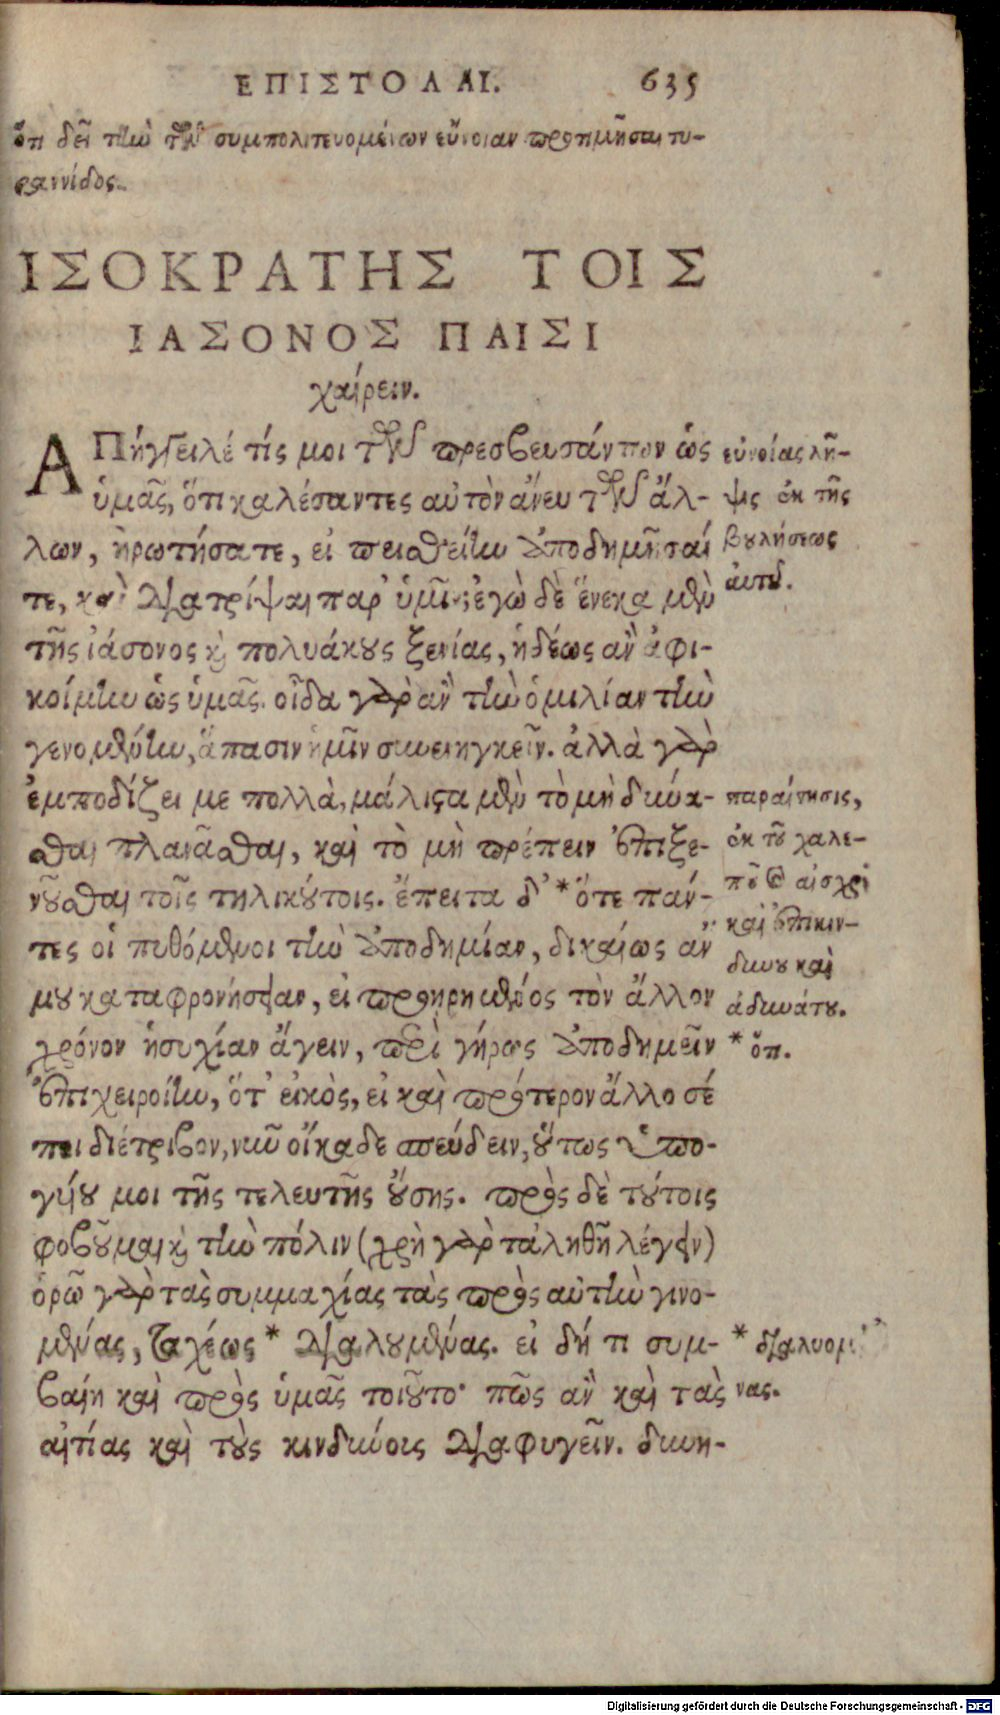 ΕΠΙΣΤΟΛΑΙ. 635
ὅτι δεῖ τὴν τῶν συμπολιτευομένων εὔνοιαν προτιμῆσαι τυ-
ραννίδος.
ΙΣΟΚΡΑΤΗΣ ΤΟΙΣ
ΙΑΣΟΝΟΣ ΠΑΙΣΙ
χαίρειν.
ΑΠήγγειλέ τίς μοι τῶν πρεσβευσάντων ὡς
ὑμᾶς, ὅτι καλέσαντες αὐτὸν ἄνευ τῶν ἄλ-
λων, ἠρωτήσατε, εἰ πεισθείην ἀποδημῆσαί
τε, καὶ διατρίψαι παρ' ὑμῖν; ἐγὼ δὲ ἕνεκα μὲν
τῆς ἰάσονος καὶ πολυάκους ξενίας, ἡδέως ἂν ἀφι-
κοίμην ὡς ὑμᾶς. οἶδα γὰρ ἂν τὴν ὁμιλίαν τὴν
γενομένην, ἅπασιν ἡμῖν συνενηγκεῖν. ἀλλὰ γὰρ
ἐμποδίζει με πολλὰ, μάλιστα μὲν τὸ μὴ δύνα-
σθαι πλανᾶσθαι, καὶ τὸ μὴ πρέπειν ἐπιξε-
νοῦσθαι τοῖς τηλικούτοις. ἔπειτα δ' * ὅτε πάν-
τες οἱ πυθόμενοι τὴν ἀποδημίαν, δικαίως ἄν
μου καταφρονήσειαν, εἰ προῃρημένος τὸν ἄλλον
χρόνον ἡσυχίαν ἄγειν, περὶ γήρως ἀποδημεῖν
ἐπιχειροίην, ὅτ' εἰκὸς, εἰ καὶ πρότερον ἄλλοσέ
ποι διέτριβον, νῦν οἴκαδε σπεύδειν, οὕτως ὑπο-
γύου μοι τῆς τελευτῆς οὔσης. πρὸς δὲ τούτοις
φοβοῦμαι καὶ τὴν πόλιν (χρὴ γὰρ τἀληθῆ λέγειν)
ὁρῶ γὰρ τὰς συμμαχίας τὰς πρὸς αὐτὴν γινο-
μένας, ταχέως * διαλουμένας. εἰ δή τι συμ-
βαίη καὶ πρὸς ὑμᾶς τοιοῦτο· πῶς ἂν καὶ τὰς
αἰτίας καὶ τοὺς κινδύνους διαφυγεῖν. δυνη-
εὐνοίας λῆ-
ψις ἐκ τῆς
βουλήσεως
αὐτοῦ.
παραίτησις,
ἐκ τοῦ χαλε-
ποῦ καὶ αἰσχροῦ
καὶ ἐπικιν-
δύνου καὶ
ἀδυνάτου.
* ὅτι.
* διαλυομέ-
νας.
Digitalisierung gefördert durch die Deutsche Forschungsgemeinschaft - DFG